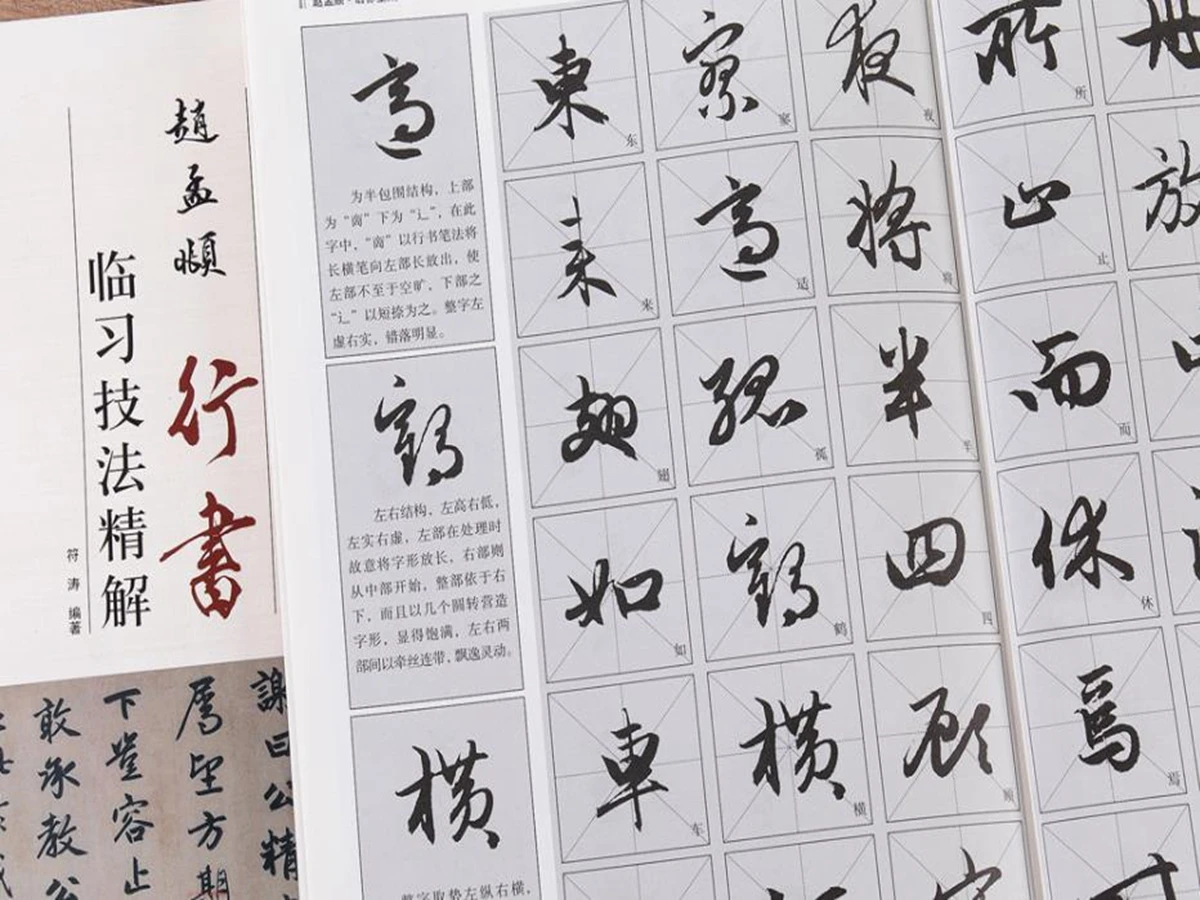 趙孟頫
行書
临习技法精解
符涛 编著
適
为半包围结构，上部
为“啇”下为“辶”，在此
字中，“啇”以行书笔法将
长横笔向左部长放出，使
左部不至于空旷，下部之
“辶”以短捺为之。整字左
虚右实，错落明显。
鶴
左右结构，左高右低，
左实右虚，左部在处理时
故意将字形放长，右部则
从中部开始，整部依于右
下，而且以几个圆转营造
字形，显得饱满，左右两
部间以牵丝连带，飘逸灵动。
横
整字取势左纵右横，
東 东
寥 寥
夜 夜
所 所
来 来
適 适
将 将
止 止
放
翅 翅
孤 孤
半 半
而 而
如 如
鶴 鹤
四 四
休 休
車 车
横 横
顾 顾
焉 焉
謝曰公精
厲望方期
下豈容止
敢承教公